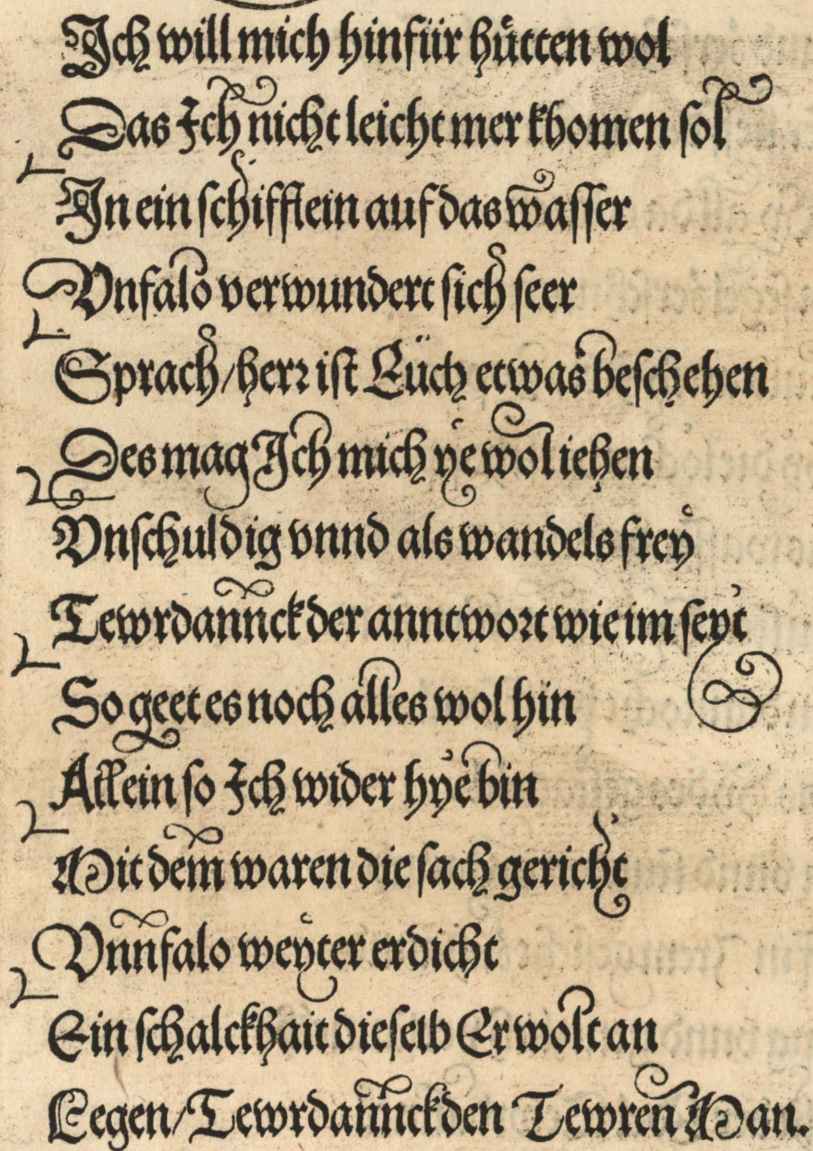 Ich will mich hinfür hütten wol
Das Ich nicht leicht mer khomen sol
In ein schifflein auf das wasser
Vnfalo verwundert sich seer
Sprach/herr ist Euch etwas beschehen
Des mag Ich mich ye wol iehen
Vnschuldig vnnd als wandels frey
Tewrdannck der anntwort wie im seyt
So geet es noch alles wol hin
Allein so Ich wider hye bin
Mit dem waren die sach gericht
Vnnfalo weyter erdicht
Ein schalckhait dieselb Er wolt an
Legen/Tewrdannck den Tewren Man.